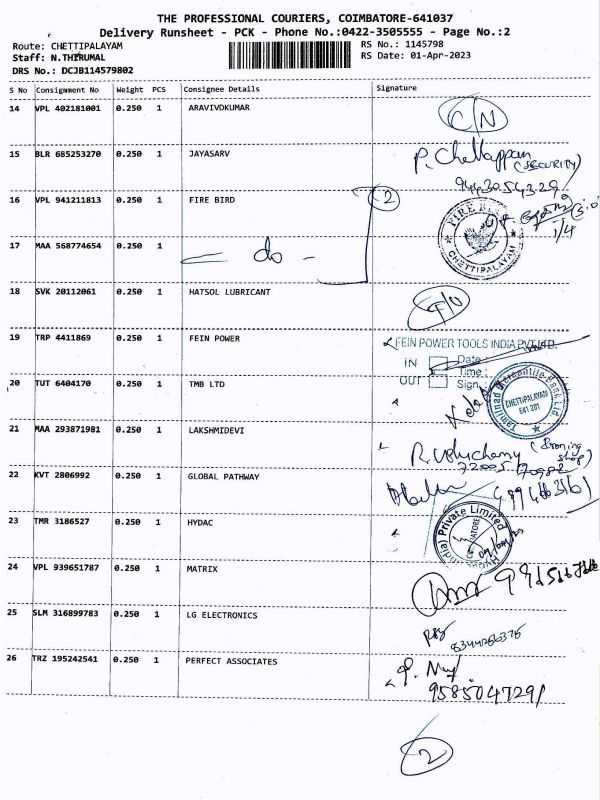 THE PROFESSIONAL COURIERS, COIMBATORE-641037
Delivery Runsheet - PCK - Phone No.:0422-3505555 - Page No.:2
Route: CHETTIPALAYAM RS No.: 1145798
Staff: N.THIRUMAL RS Date: 01-Apr-2023
DRS No.: DCJB114579802
S No Consignment No Weight PCS Consignee Details Signature
14 VPL 402181001 0.250 1 ARAVIVDKUMAR C/N
15 BLR 685253270 0.250 1 JAYASARV P. Chellappan (SECURITY)
9443054329
16 VPL 941211813 0.250 1 FIRE BIRD 2
FIRE BIRD
CHETTIPALAYAM
1/4
17 MAA 568774654 0.250 1 do
18 SVK 20112061 0.250 1 HATSOL LUBRICANT
19 TRP 4411869 0.250 1 FEIN POWER FEIN POWER TOOLS INDIA PVT.LTD.
IN Date:
Time:
OUT Sign:
20 TUT 6404170 0.250 1 TMB LTD
Tamilnad Mercantile Bank Ltd.
CHETTIPALAYAM
641 201
21 MAA 293871981 0.250 1 LAKSHMIDEVI R. Veluchamy (Ironing shop)
22 KVT 2806992 0.250 1 GLOBAL PATHWAY
23 TMR 3186527 0.250 1 HYDAC
(India) Private Limited
24 VPL 939651787 0.250 1 MATRIX
25 SLM 316899783 0.250 1 LG ELECTRONICS
26 TRZ 195242541 0.250 1 PERFECT ASSOCIATES
9585047291
2